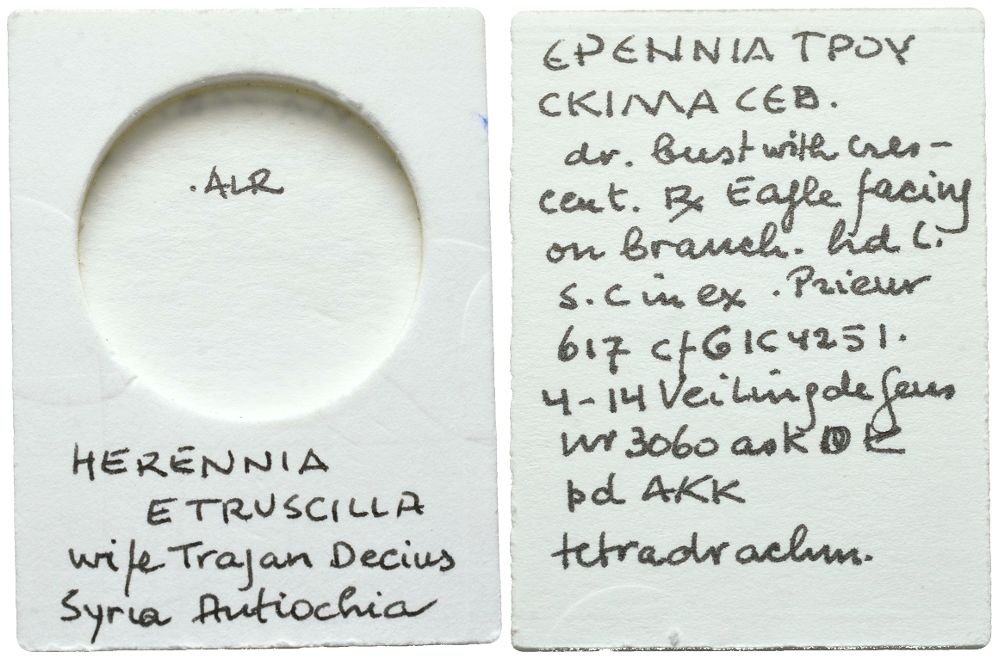 .ALR
HERENNIA
ETRUSCILLA
wife Trajan Decius
Syria Antiochia
ЄΡΕΝΝΙΑ ΤΡΟΥ
CΚΙΛΛΑ CЄB.
dr. bust with cres-
cent. Rx Eagle facing
on branch. hd l.
S.C in ex . Prieur
617 cf GIC 4251.
4-14 Veiling de Geus
nr 3060 ask
pd AKK
tetradrachm.